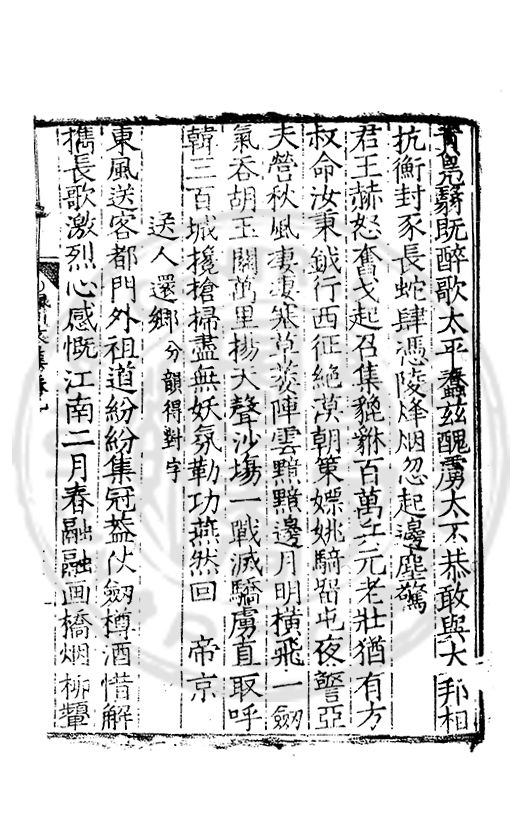 霄晃翳既醉歌太平蠢玆醜虜太不恭敢與大邦相
抗衡封豕長蛇肆憑陵烽烟忽起邊塵驚
君王赫怒奮戈起召集貔貅百萬兵元老壯猶有方
叔命汝秉鉞行西征絶漠朝策嫖姚騎留屯夜警亞
夫營秋風凄凄塞草荄陣雲黯黯邊月明橫飛一劒
氣吞胡玉關萬里揚大聲沙塲一戰滅驕虜直取呼
韓三百城攙搶掃盡無妖氛勒功燕然回 帝京
送人還鄉分韻得對字
東風送客都門外祖道紛紛集冠盖仗劒樽酒惜解
携長歌激烈心感慨江南二月春融融画橋烟柳顰